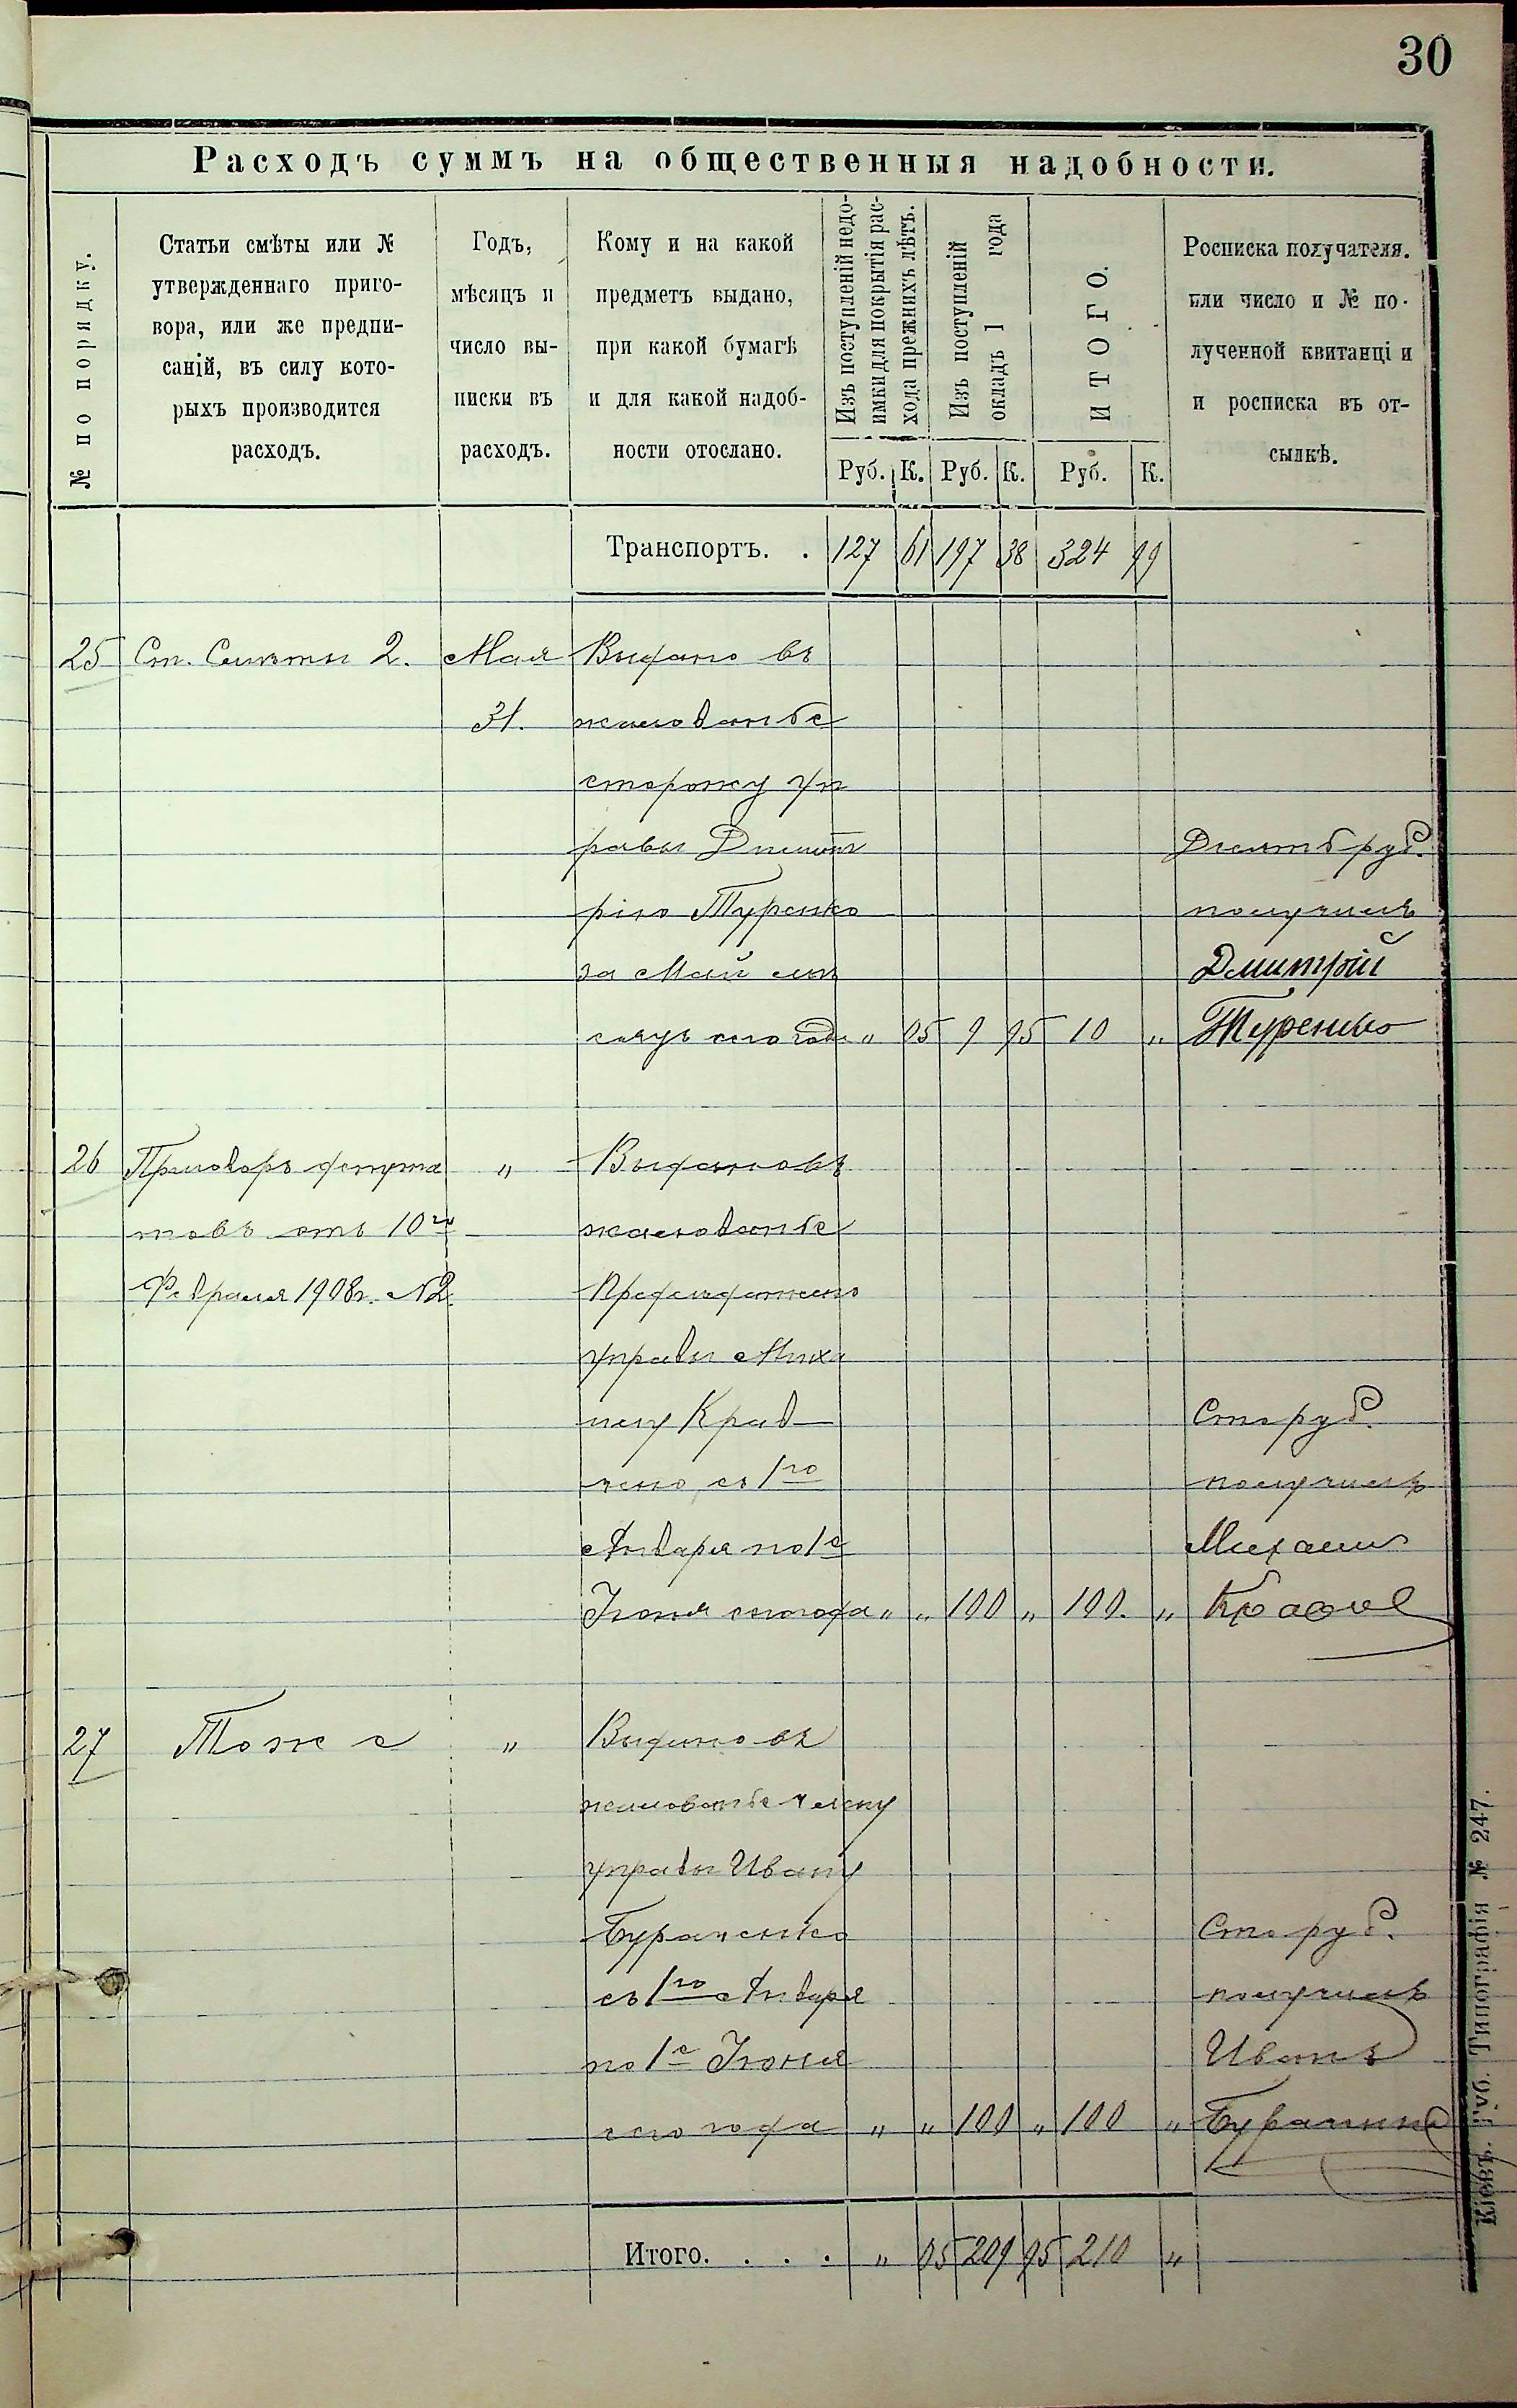 30
Расходъ суммъ на общественныя надобности.
№ по порядку.
Статьи смѣты или №
утвержденнаго приго-
вора, или же предпи-
саній, въ силу кото-
рыхъ производится
расходъ.
Годъ,
мѣсяцъ и
число вы-
писки въ
расходъ.
Кому и на какой
предметъ выдано,
при какой бумагѣ
и для какой надоб-
ности отослано.
Изъ поступленій недо-
имки для покрытія рас-
хода прежнихъ лѣтъ.
Изъ поступленій
окладъ 1 года
ИТОГО.
Росписка получателя.
или число и № по-
лученной квитанціи
и росписка въ от-
сылкѣ.
Руб. К. Руб. К. Руб. К.
Транспортъ. . 127 61 197 38 324 99
25 Ст. Смѣты 2. Мая Выдано въ
31. жалованье
сторожу уп
равы Дмит
рію Туренко
за Май мѣ
сяцъ сего года „ 05 9 95 10 „
Десять руб.
получилъ
Дмитрій
Туренко
26 Приговоръ депута „ Выдано въ
товъ отъ 10го жалованье
Февраля 1908г. №2. Предсѣдателю
управы Миха
илу Крав
ченко съ 1го
Января по 1е
Іюня сего года „ „ 100 „ 100. „
Сто руб.
получилъ
Михаил
27 Тоже „ Выдано въ
жалованье члену
управы Ивану
Бураченко
съ 1го Января
по 1е Іюня
сего года „ „ 100 „ 100 „
Сто руб.
получилъ
Иванъ
Итого. . . . „ 05 209 95 210 „
Кіевъ. Губ. Типографія № 247.